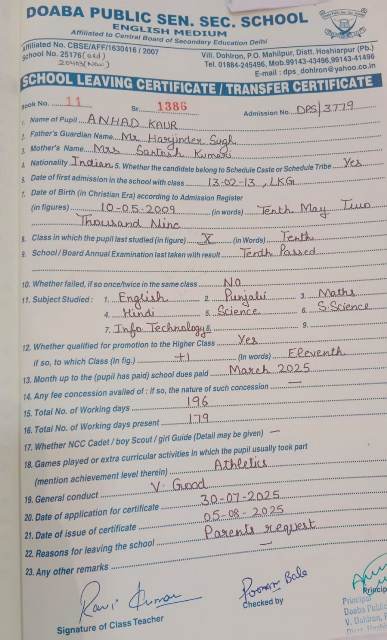 DOABA PUBLIC SEN. SEC. SCHOOL
ENGLISH MEDIUM
Affiliated to Central Board of Secondary Education Delhi
Affiliated No. CBSE/AFF/1630416 / 2007
School No. 25176 (old)
20483 (New)
Vill. Dohlron, P.O. Mahilpur, Distt. Hoshiarpur (Pb.)
Tel. 01884-245496, Mob.99143-43496,99143-41496
E-mail : dps_dohlron@yahoo.co.in
SCHOOL LEAVING CERTIFICATE / TRANSFER CERTIFICATE
Book No. 11 Sr. 1386 Admission No. DPS/3779
1. Name of Pupil ANHAD KAUR
2. Father's Guardian Name Mr Harjinder Sigh
3. Mother's Name Mrs Santosh Kumari
4. Nationality Indian 5. Whether the candidate belong to Schedule Caste or Schedule Tribe Yes
6. Date of first admission in the school with class 13-02-13, LKG
7. Date of Birth (in Christian Era) according to Admission Register
(in figures) 10-05-2009 (in words) Tenth May Two
Thousand Nine
8. Class in which the pupil last studied (in figure) X (in Words) Tenth
9. School / Board Annual Examination last taken with result Tenth Passed
10. Whether failed, if so once/twice in the same class No
11. Subject Studied : 1. English 2. Punjabi 3. Maths
4. Hindi 5. Science 6. S.Science
7. Info Technology 8. 9.
12. Whether qualified for promotion to the Higher Class Yes
if so, to which Class (in fig.) +1 (in Words) Eleventh
13. Month up to the (pupil has paid) school dues paid March 2025
14. Any fee concession availed of : if so, the nature of such concession —
15. Total No. of Working days 196
16. Total No. of Working days present 179
17. Whether NCC Cadet / boy Scout / girl Guide (Detail may be given) —
18. Games played or extra curricular activities in which the pupil usually took part
(mention achievement level therein) Athletics
19. General conduct V. Good
20. Date of application for certificate 30-07-2025
21. Date of issue of certificate 05-08-2025
22. Reasons for leaving the school Parents request
23. Any other remarks —
Ravi Kumar Poonam Bala
Signature of Class Teacher Checked by
Principal
Doaba Public
V. Dohlron,